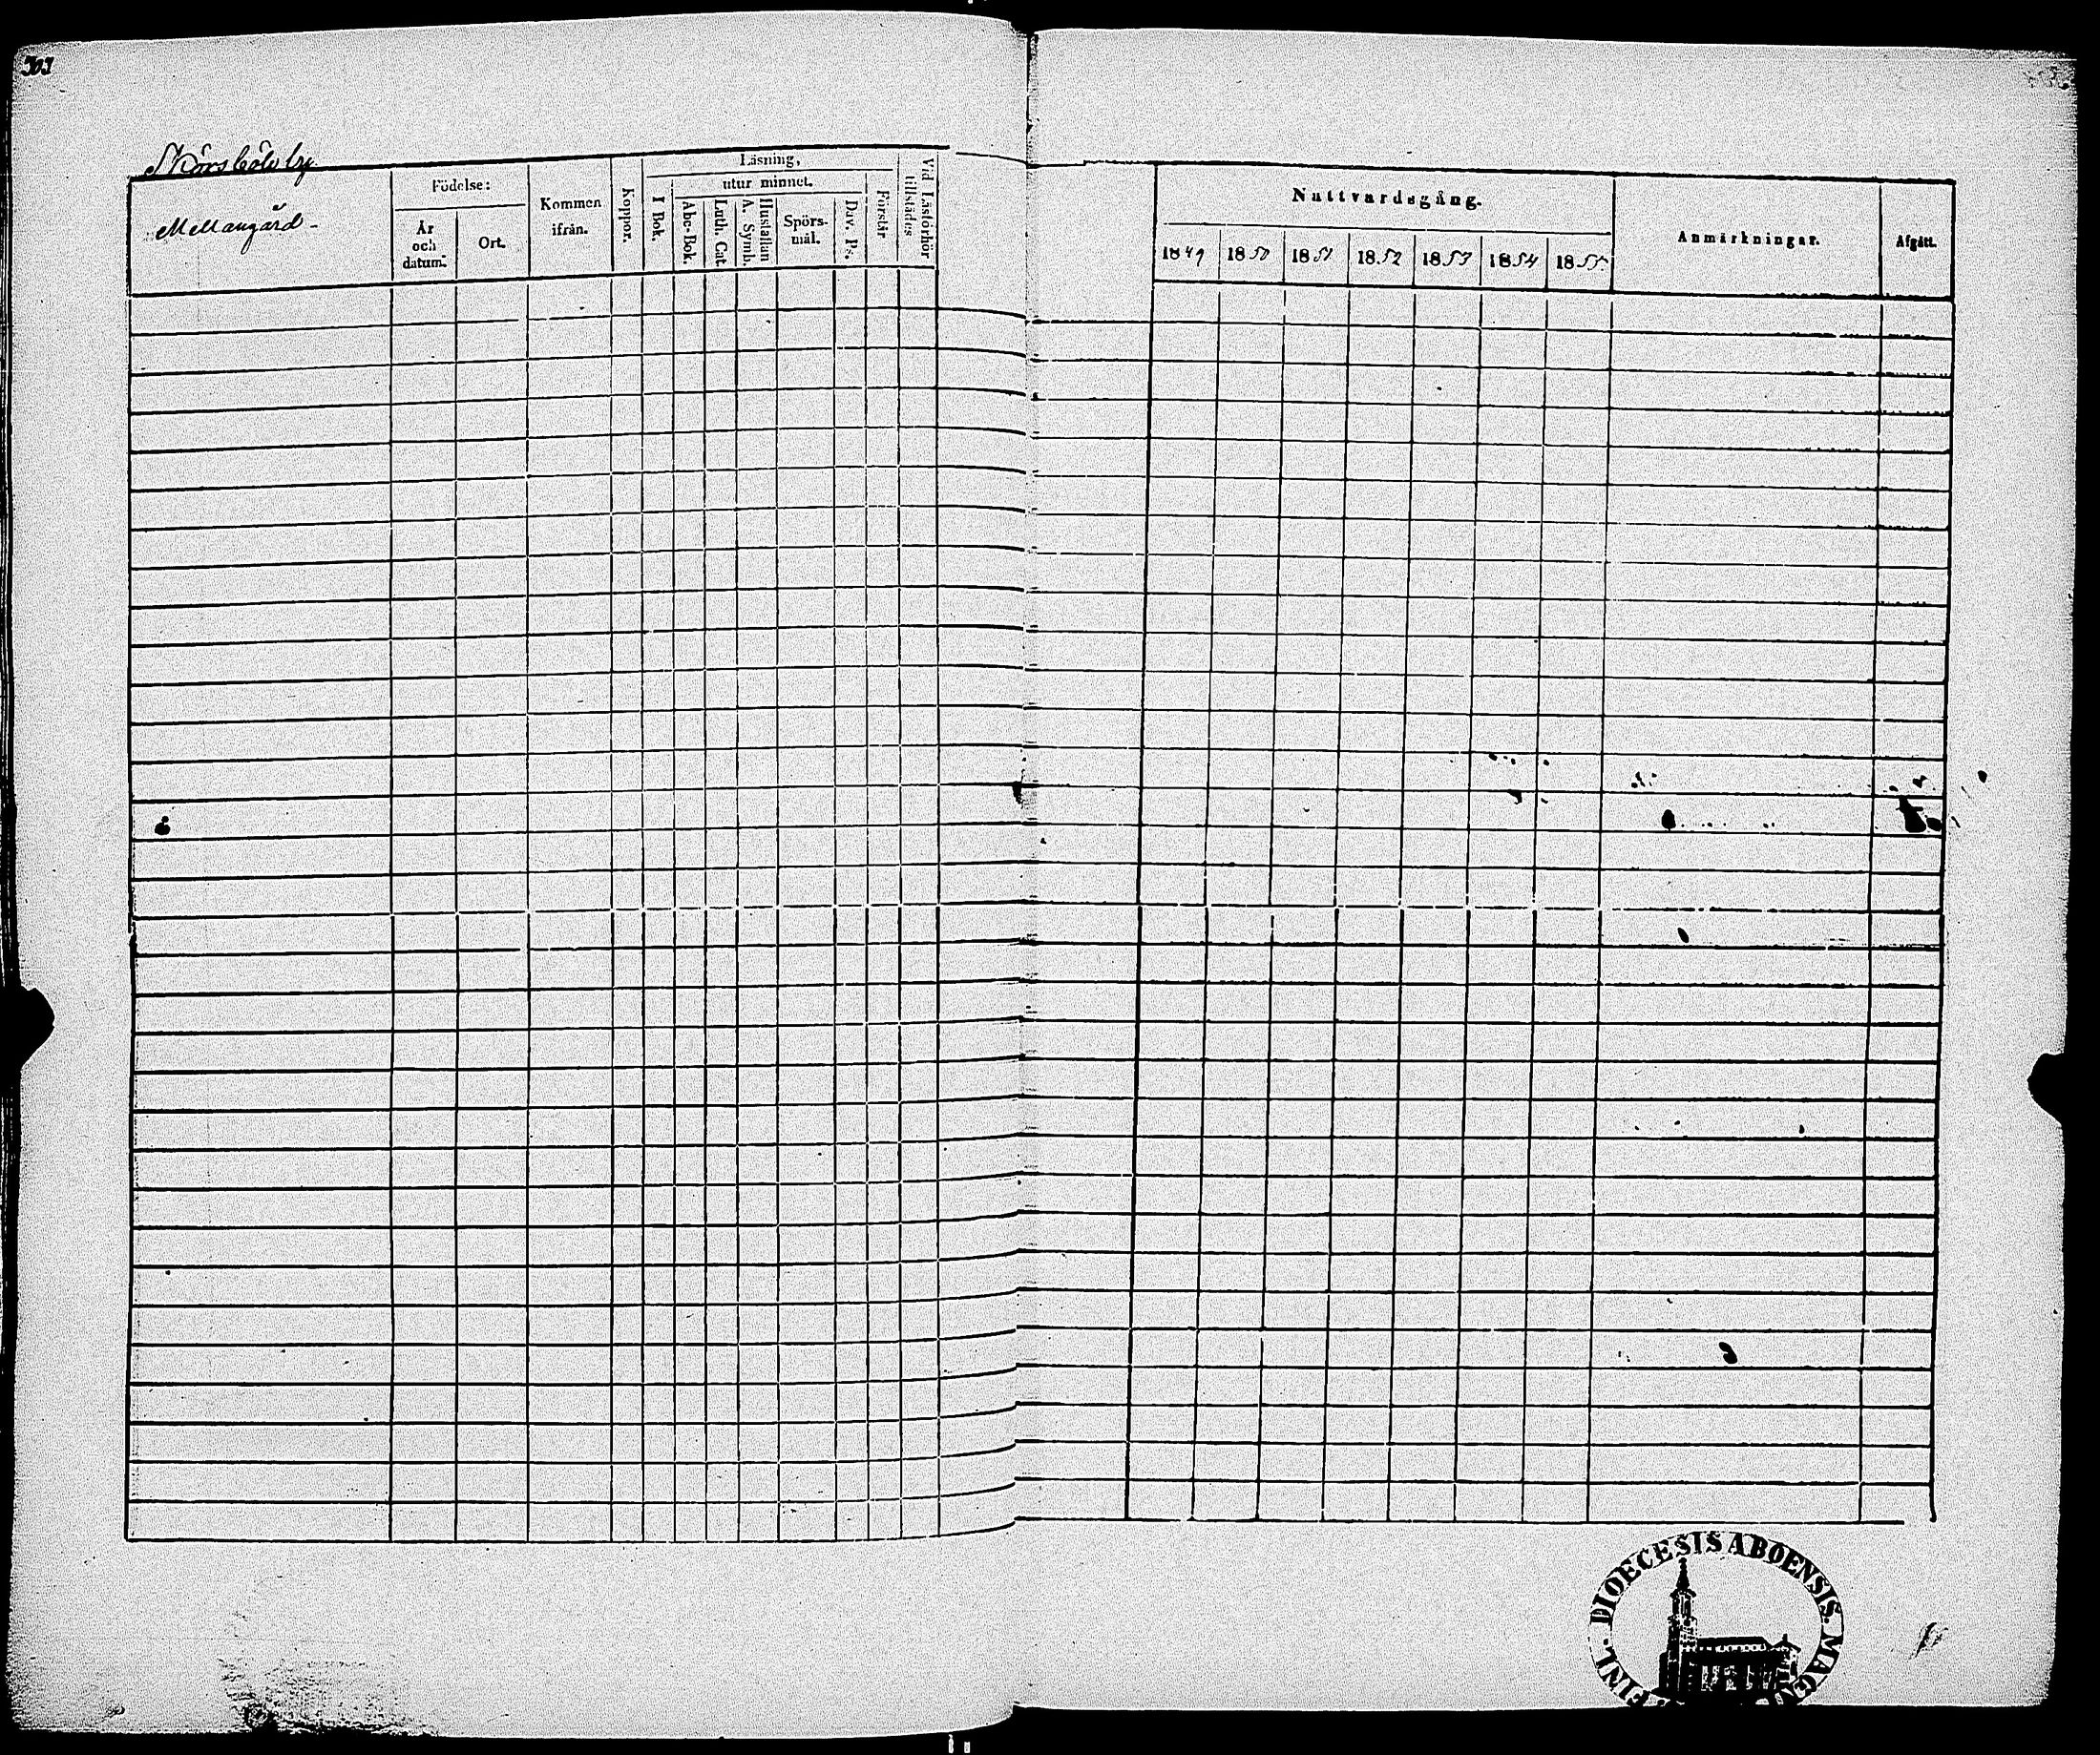 Mellangård
Födelse:
År och datum.
Ort.
Kommen ifrån.
Koppor.
Läsning,
I Bok.
utur minnet.
Abc-Bok.
Luth. Cat.
A. Symb.
Hustaflan
Spörsmål.
Dav. Ps.
Förstår
Vid Läsförhör tillstädes
Nattvardsgång.
1849 1850 1851 1852 1853 1854 1855.
Anmärkningar.
Afgått.
FINL. DIOECESIS ABOENSIS. MAGN